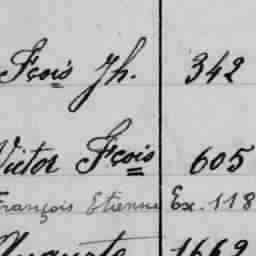 Fçois Jh. 342
Victor Fçois 605
François Etienne Ex. 118
Auguste 1669